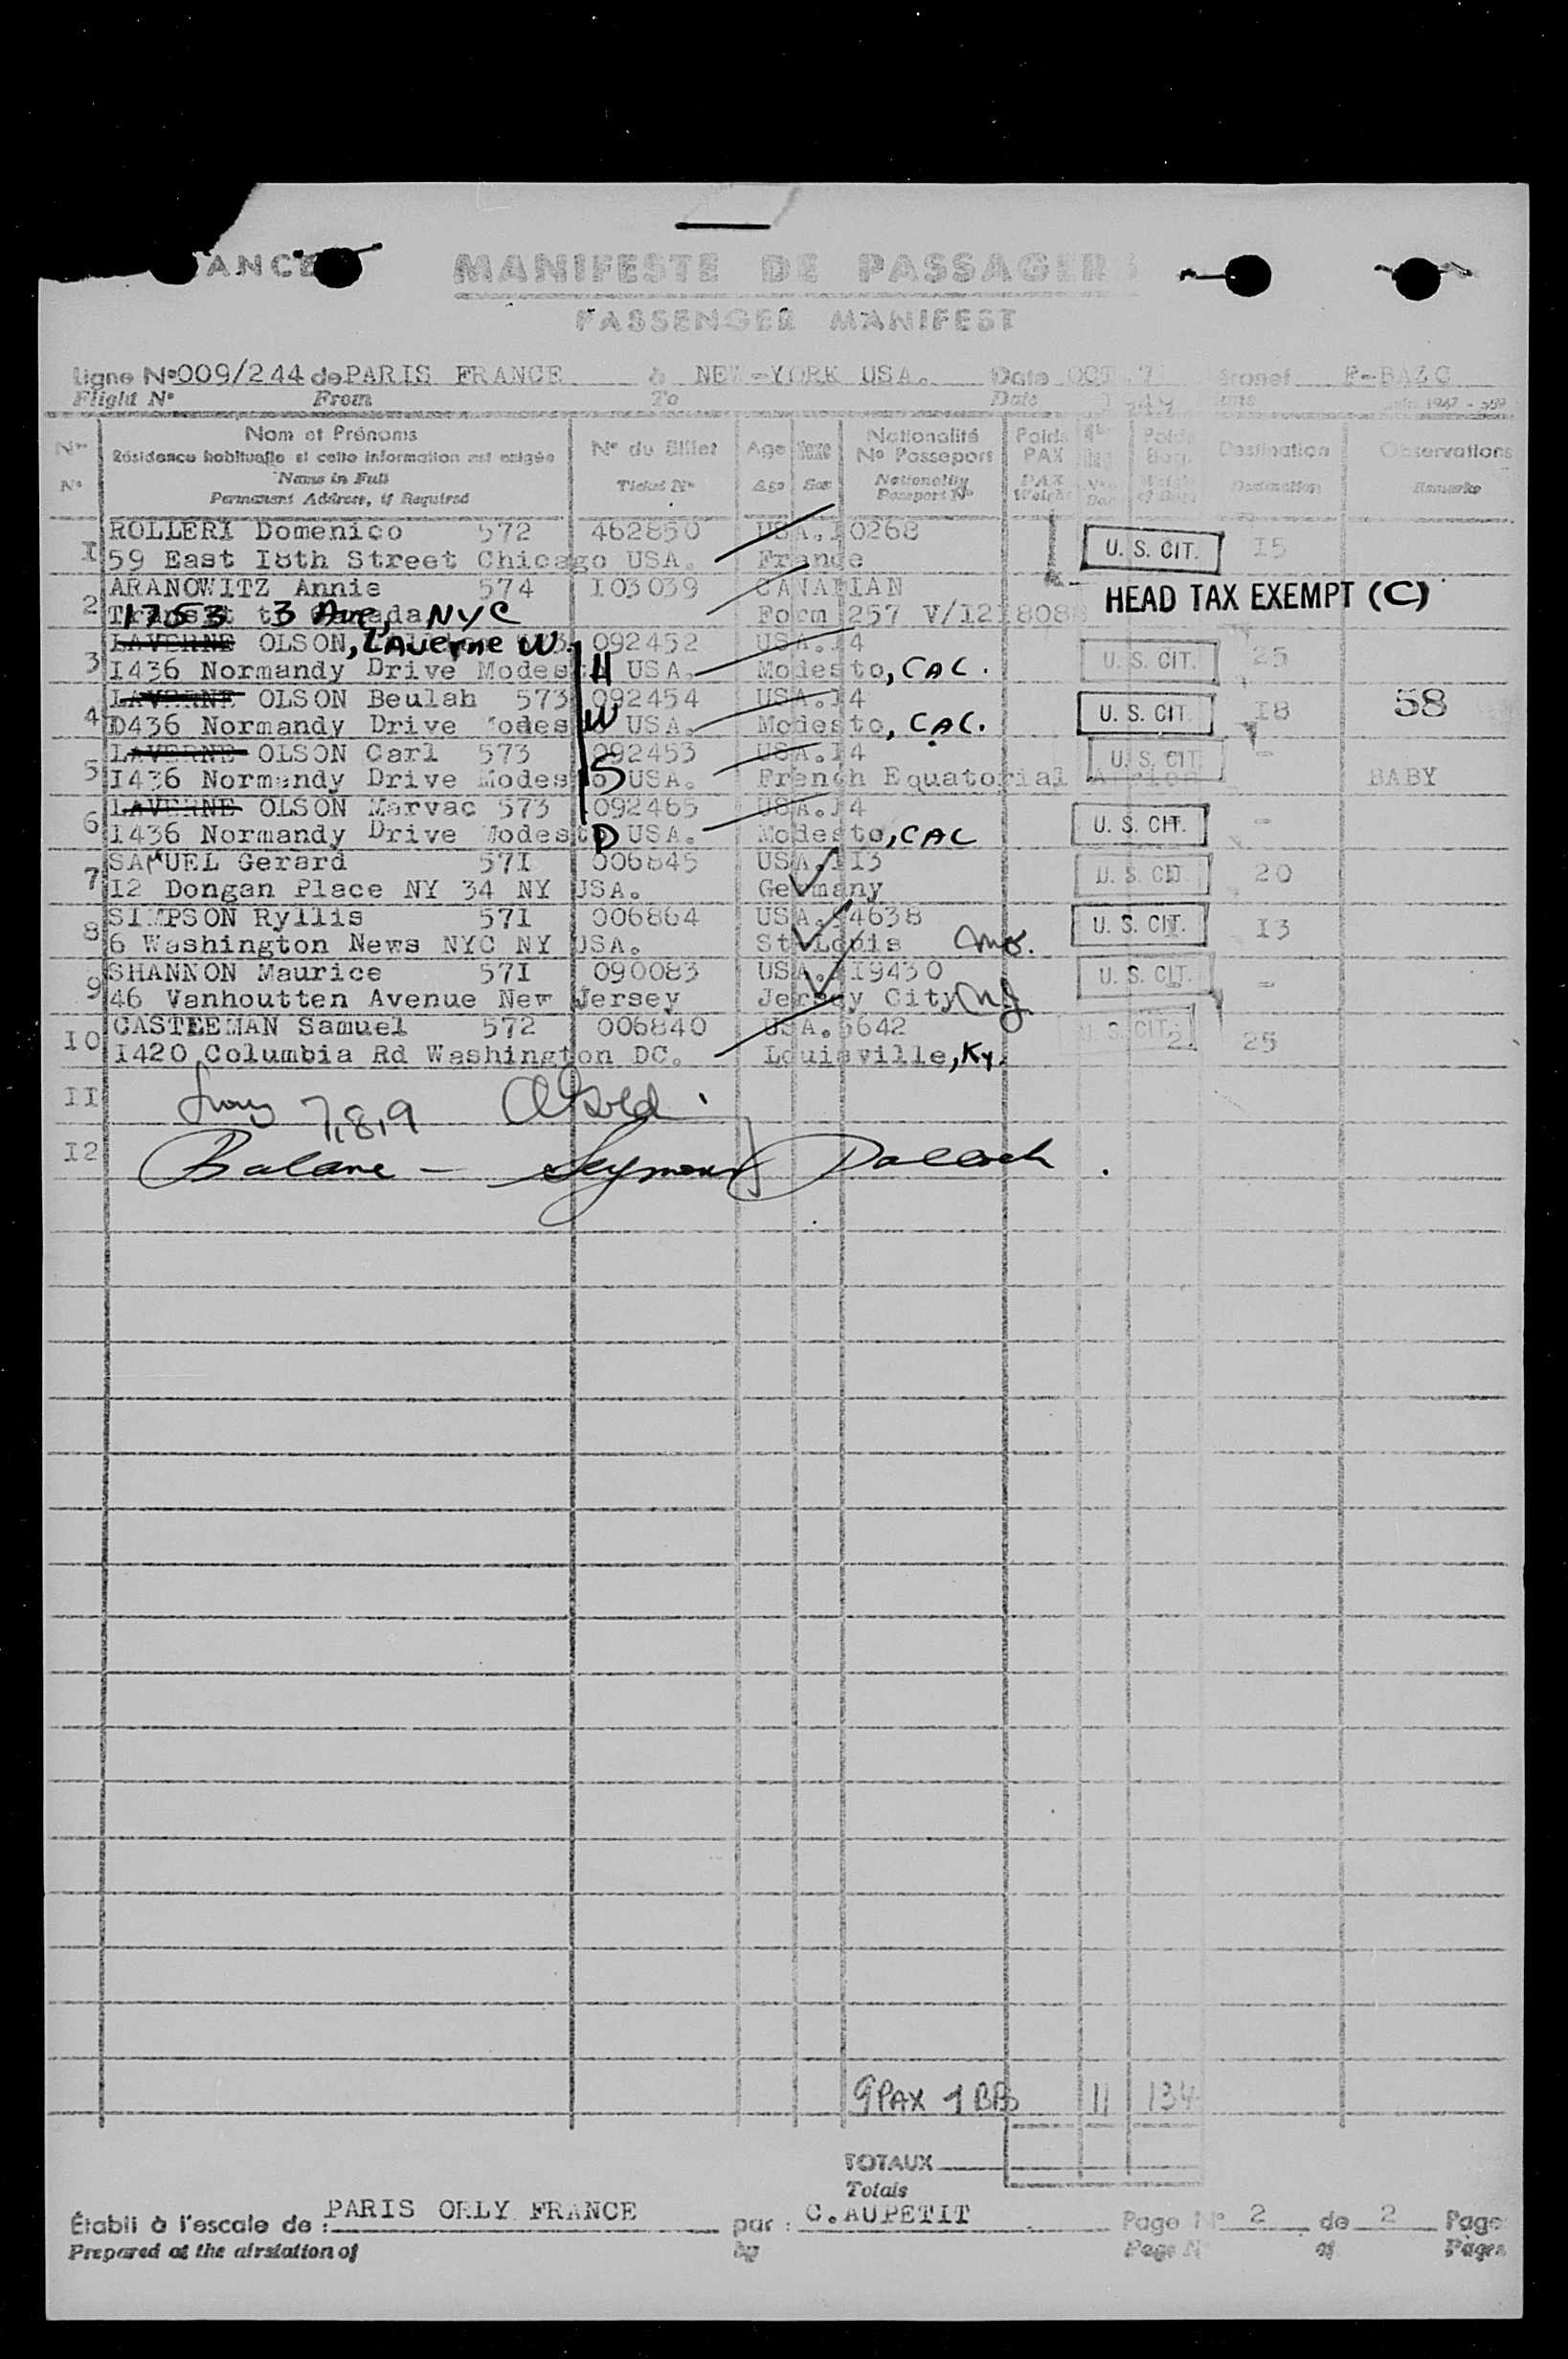 ANCE
MANIFESTE DE PASSAGERS
PASSENGER MANIFEST
Ligne N° 009/244 de PARIS FRANCE à NEW-YORK USA. Date OCT 7 F-BAZC
Flight N° From To Date
N° Nom et Prénoms N° du Billet Age Sexe Nationalité Poids Poids Destination Observations
Résidence habituelle si cette information est exigée N° Passeport PAX Bag.
N° Name in Full Ticket N° Age Sex Nationality PAX Destination Remarks
Permanent Address, if Required Passport N° Weight
1 ROLLERI Domenico 572 462850 USA. 10268 U. S. CIT. 15
59 East 18th Street Chicago USA. France
2 ARANOWITZ Annie 574 103039 CANADIAN HEAD TAX EXEMPT (C)
Transit to Canada 1753 3 Ave, NYC Form 257 V/1218088
3 LAVERNE OLSON, LAVerne W. 092452 USA.14 U. S. CIT. 25
1436 Normandy Drive Modesto H USA. Modesto, CAC.
4 LAVERNE OLSON Beulah 573 092454 USA.14 U. S. CIT. 18 58
D436 Normandy Drive Modesto W USA. Modesto, CAC.
5 LAVERNE OLSON Carl 573 092453 USA.14 U. S. CIT. -
1436 Normandy Drive Modesto S USA. French Equatorial Africa BABY
6 LAVERNE OLSON Marvac 573 092465 USA.14 U. S. CIT. -
1436 Normandy Drive Modesto D USA. Modesto, CAC
7 SAMUEL Gerard 571 006845 USA.113 U. S. CIT. 20
12 Dongan Place NY 34 NY USA. Germany
8 SIMPSON Ryllis 571 006864 USA.54638 U. S. CIT. 13
6 Washington News NYC NY USA. St Louis Mo.
9 SHANNON Maurice 571 090083 USA.119430 U. S. CIT. -
46 Vanhoutten Avenue New Jersey Jersey City NJ
10 CASTEEMAN Samuel 572 006840 USA.5642 U. S. CIT. 2 25
1420 Columbia Rd Washington DC. Louisville, Ky.
11 7,8,9
12 Balance - Seymour
9 PAX 1 BB 11 134
TOTAUX
Totals
Établi à l'escale de : PARIS ORLY FRANCE par : C.AUPETIT Page N° 2 de 2 Page
Prepared at the airstation of by Page N° of Pages